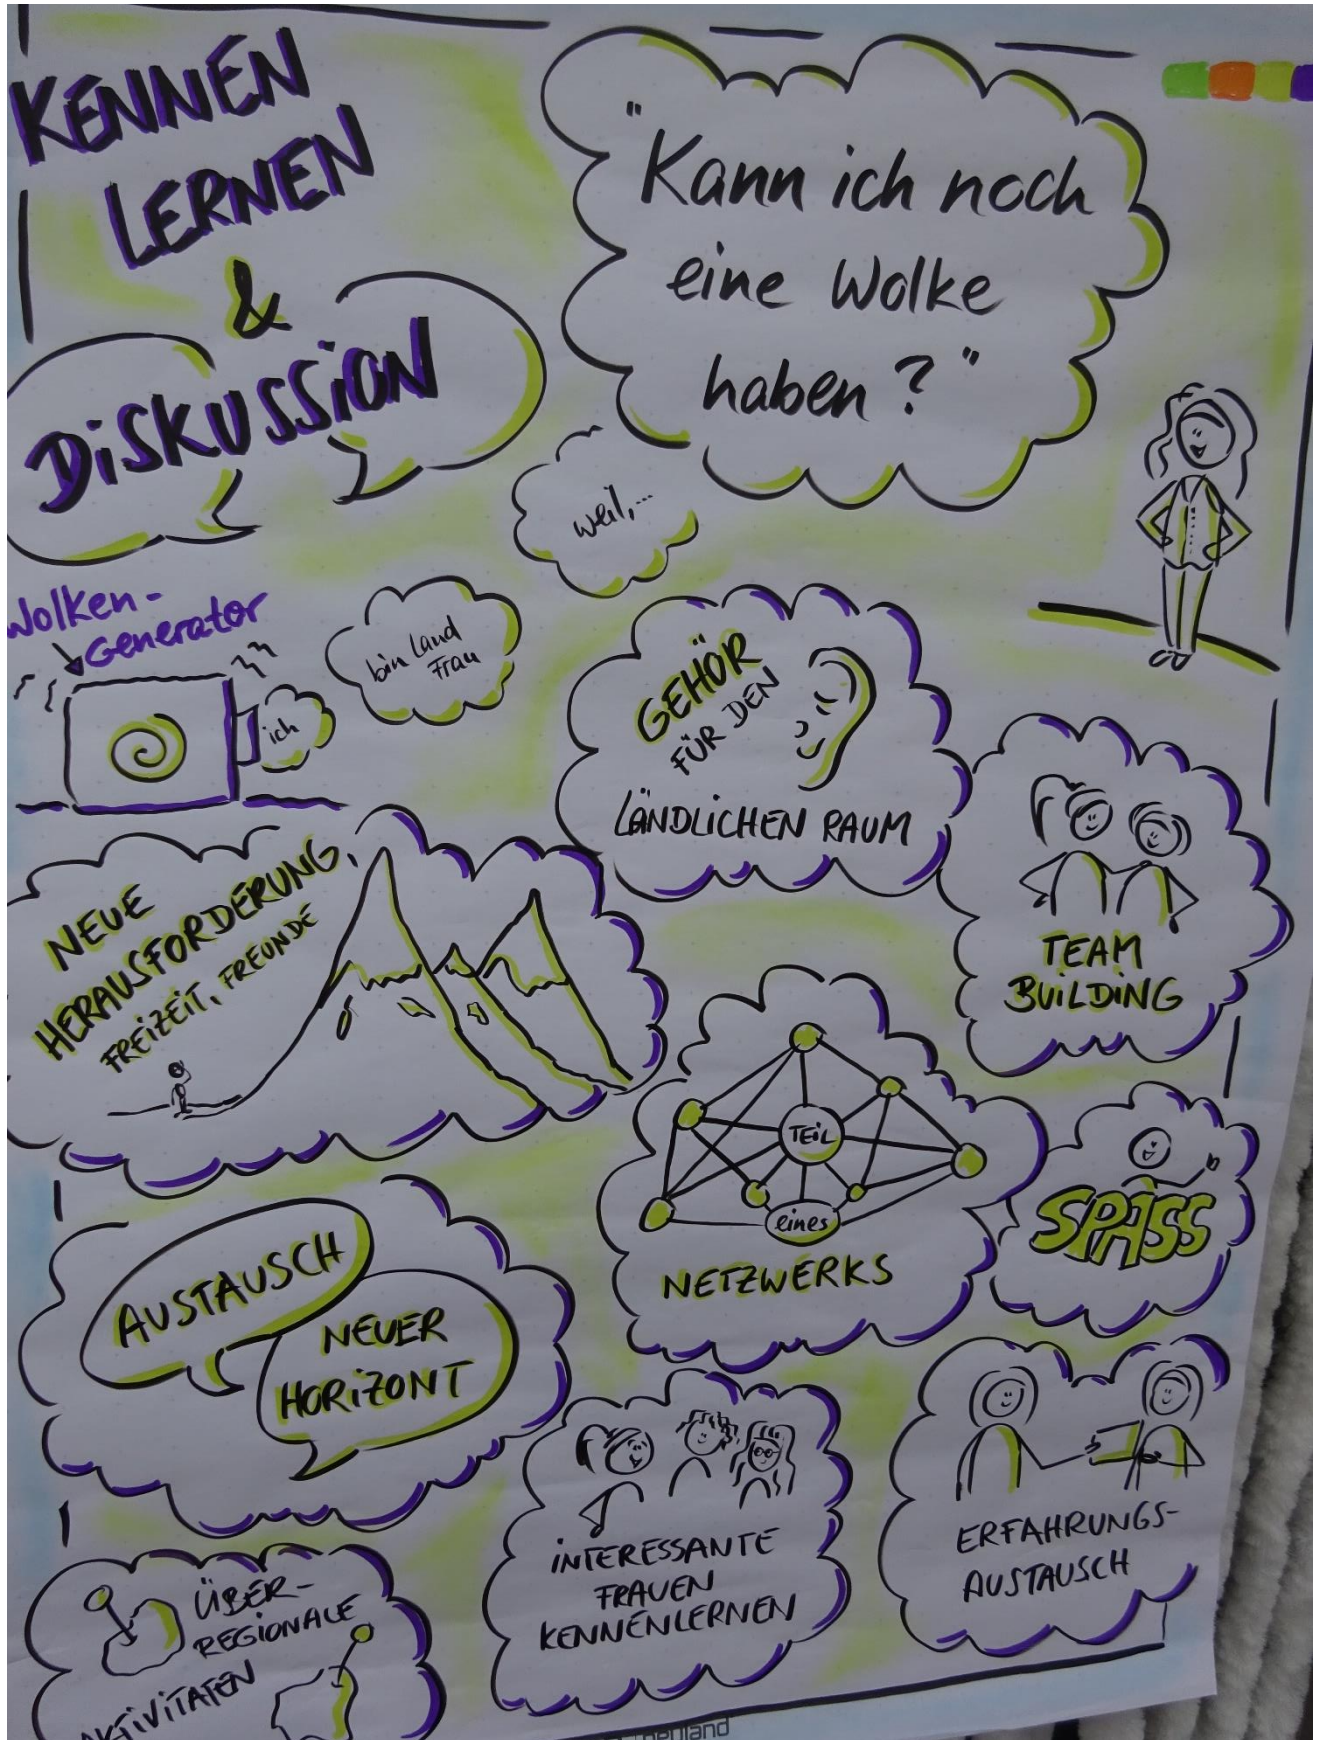 KENNEN
LERNEN
&
DISKUSSION
"Kann ich noch
eine Wolke
haben?"
Wolken-
Generator
ich
bin Land
Frau
weil,...
GEHÖR
FÜR DEN
LÄNDLICHEN RAUM
TEAM
BUILDING
NEUE
HERAUSFORDERUNG,
FREIZEIT, FREUNDE
TEIL
eines
NETZWERKS
SPASS
AUSTAUSCH
NEUER
HORIZONT
INTERESSANTE
FRAUEN
KENNENLERNEN
ERFAHRUNGS-
AUSTAUSCH
ÜBER-
REGIONALE
AKTIVITÄTEN
neuland